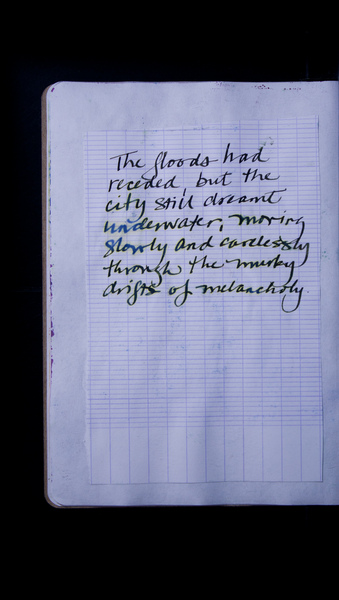 The floods had
receded, but the
city still dreamt
underwater, moving
slowly and carelessly
through the murky
drifts of melancholy.